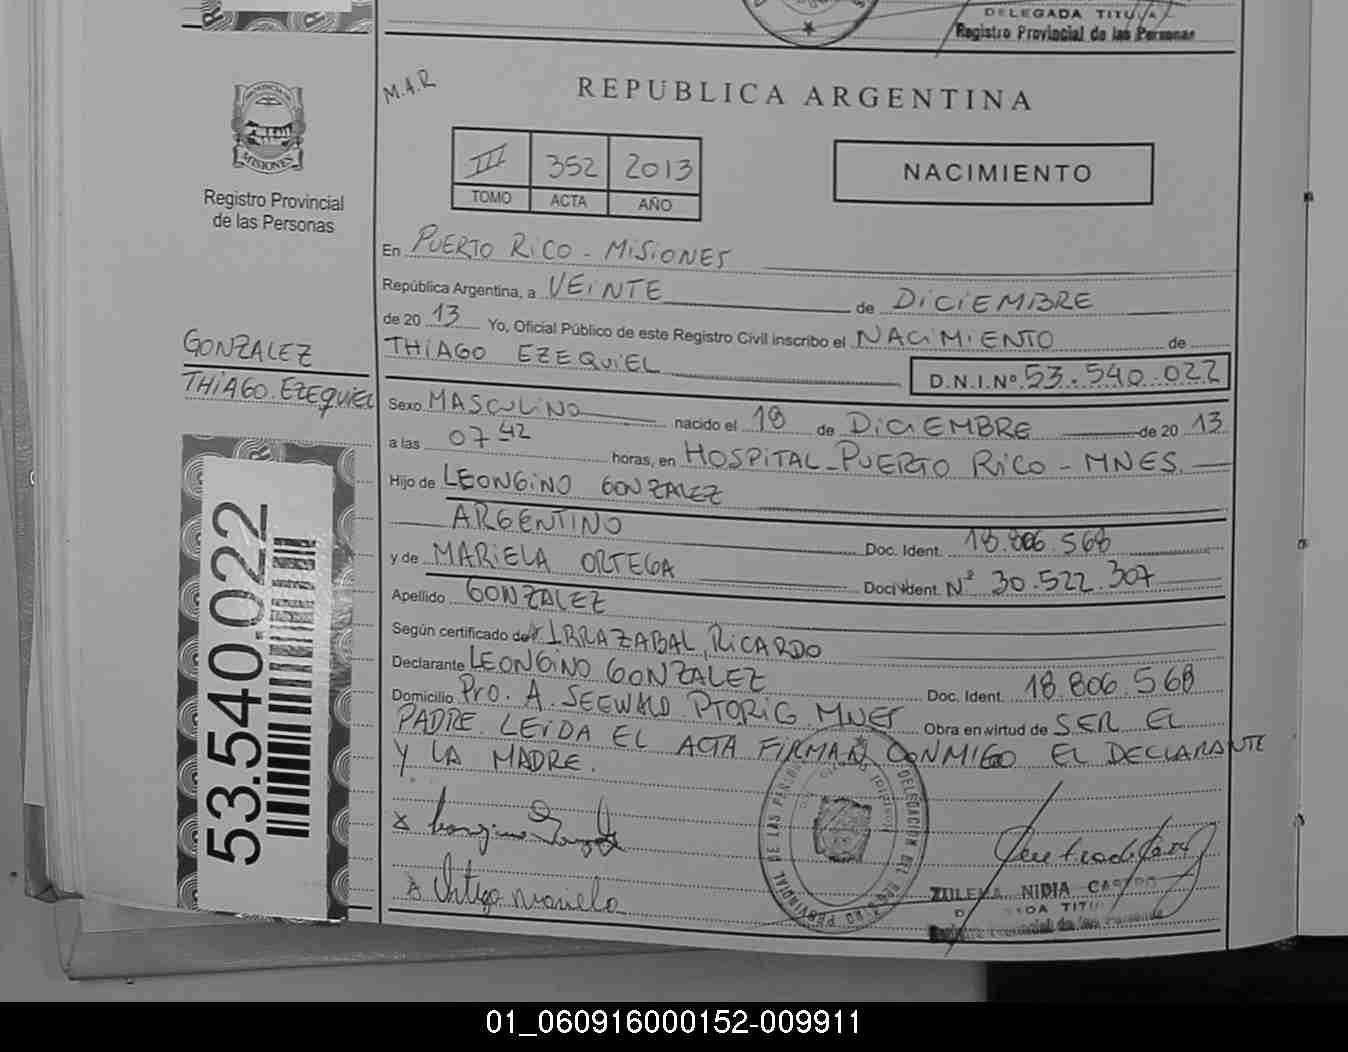 DELEGADA TITULA
Registro Provincial de las Personas
M.A.R
REPUBLICA ARGENTINA
PROVINCIA DE
MISIONES
Registro Provincial
de las Personas
III 352 2013
TOMO ACTA AÑO
NACIMIENTO
En PUERTO RICO - MISIONES
República Argentina, a VEINTE de DICIEMBRE
de 20 13 Yo, Oficial Público de este Registro Civil inscribo el NACIMIENTO de
THIAGO EZEQUIEL D.N.I.Nº 53.540.022
GONZALEZ
THIAGO EZEQUIEL
Sexo MASCULINO nacido el 18 de DICIEMBRE de 20 13
a las 07 42 horas, en HOSPITAL - PUERTO RICO - MNES.
Hijo de LEONGINO GONZALEZ
ARGENTINO Doc. Ident. 18.806.568
y de MARIELA ORTEGA Doc. Ident. Nº 30.522.307
Apellido GONZALEZ
Según certificado de Dr. IRRAZABAL, RICARDO
Declarante LEONGINO GONZALEZ Doc. Ident. 18.806.568
Domicilio Pro. A. SEEWALD PTORIG MNES Obra en virtud de SER EL
PADRE. LEIDA EL ACTA FIRMAN CONMIGO EL DECLARANTE
Y LA MADRE.
53.540.022
x
x Ortega Mariela
ZULEMA NIDIA CASTRO
01_060916000152-009911